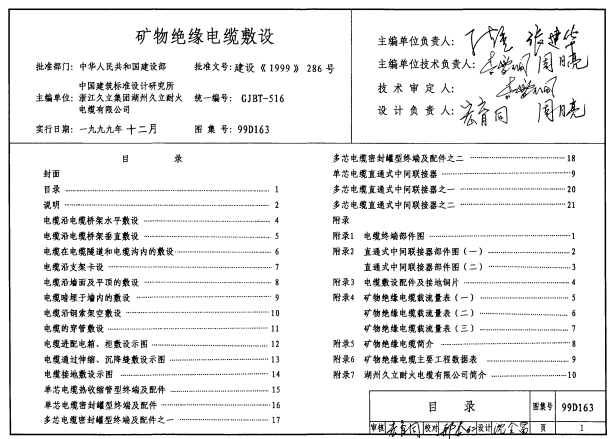 矿物绝缘电缆敷设
批准部门: 中华人民共和国建设部 批准文号: 建设《1999》286号
中国建筑标准设计研究所
主编单位: 浙江久立集团湖州久立耐火 统一编号: GJBT-516
电缆有限公司
实行日期: 一九九九年十二月 图集号: 99D163
主编单位负责人:
主编单位技术负责人: 周月亮
技术审定人:
设计负责人: 周月亮
目 录
封面
目录 1
说明 2
电缆沿电缆桥架水平敷设 4
电缆沿电缆桥架垂直敷设 5
电缆在电缆隧道和电缆沟内的敷设 6
电缆沿支架卡设 7
电缆沿墙面及平顶的敷设 8
电缆暗埋于墙内的敷设 9
电缆沿钢索架空敷设 10
电缆的穿管敷设 11
电缆进配电箱、柜敷设示图 12
电缆通过伸缩、沉降缝敷设示图 13
电缆接地敷设示图 14
单芯电缆热收缩管型终端及配件 15
单芯电缆密封罐型终端及配件 16
多芯电缆密封罐型终端及配件之一 17
多芯电缆密封罐型终端及配件之二 18
单芯电缆直通式中间联接器 9
多芯电缆直通式中间联接器之一 20
多芯电缆直通式中间联接器之二 21
附录
附录1 电缆终端部件图 1
附录2 直通式中间联接器部件图（一） 2
直通式中间联接器部件图（二） 3
附录3 电缆敷设配件及接地铜片 4
附录4 矿物绝缘电缆载流量表（一） 5
矿物绝缘电缆载流量表（二） 6
矿物绝缘电缆载流量表（三） 7
附录5 矿物绝缘电缆简介 8
附录6 矿物绝缘电缆主要工程数据表 9
附录7 湖州久立耐火电缆有限公司简介 10
目 录 图集号 99D163
审核 校对 设计 页 1